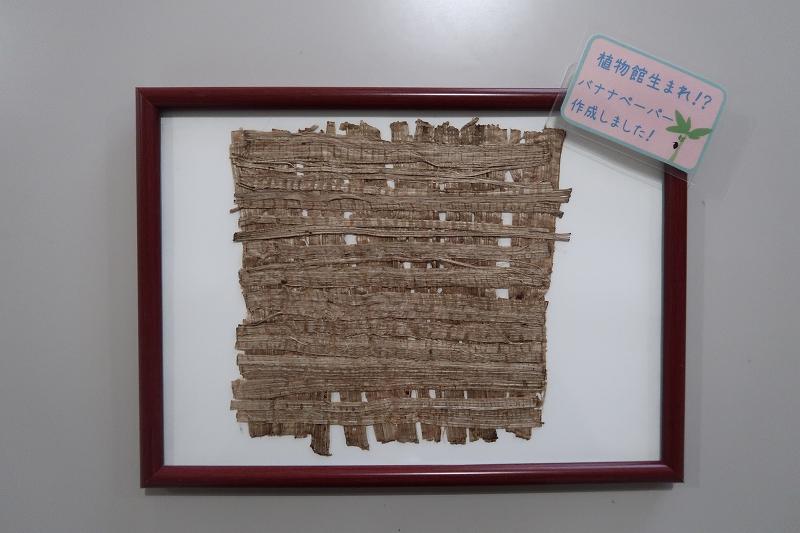 植物館生まれ!?
バナナペーパー
作成しました!